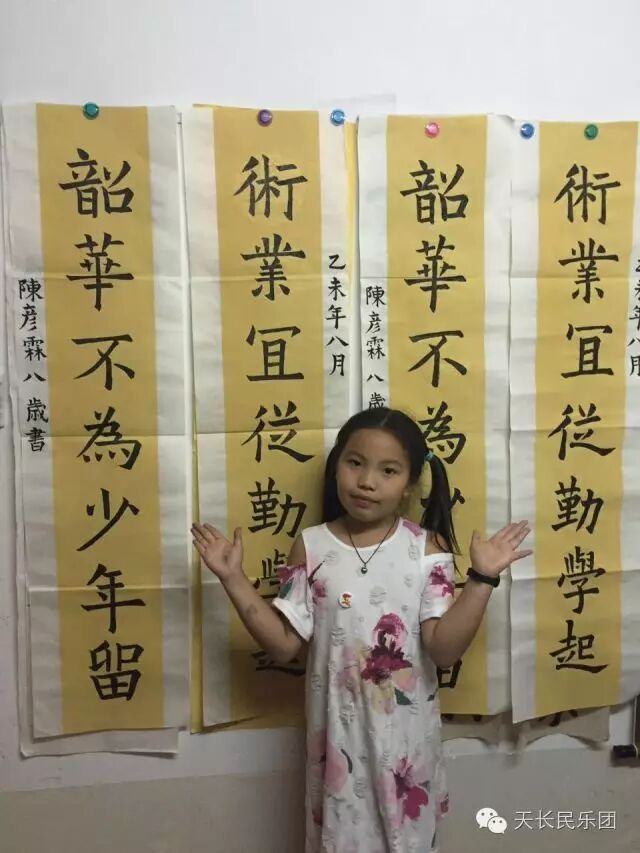 乙未年八月
術業冝從勤學起
韶華不為少
陳彦霖八歲
乙未年八月
術業冝從勤學起
韶華不為少年留
陳彦霖八歲書
天长民乐团